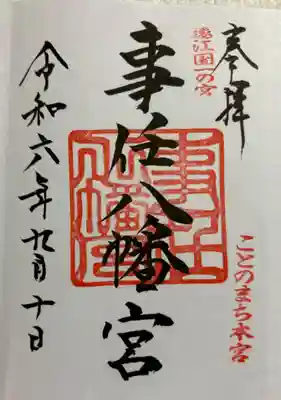 奉拝
遠江国一の宮
ことのまち本宮
事任八幡宮
事任八幡宮
令和六年九月十日